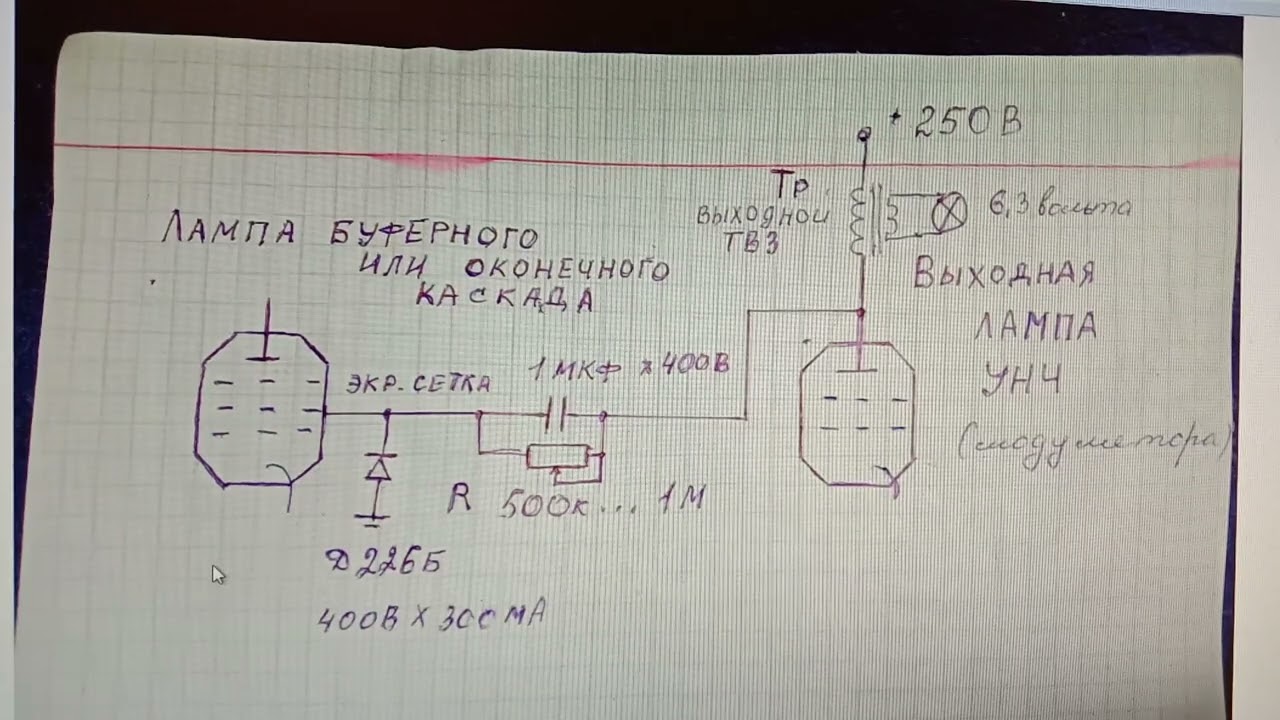 +250В
Тр.
ВЫХОДНОЙ
ТВЗ
6,3 вольта
ЛАМПА БУФЕРНОГО
ИЛИ ОКОНЕЧНОГО
КАСКАДА
ВЫХОДНАЯ
ЛАМПА
УНЧ
(модулятора)
ЭКР. СЕТКА
1 МКФ х 400В
R 500к... 1М
Д226Б
400В х 300МА